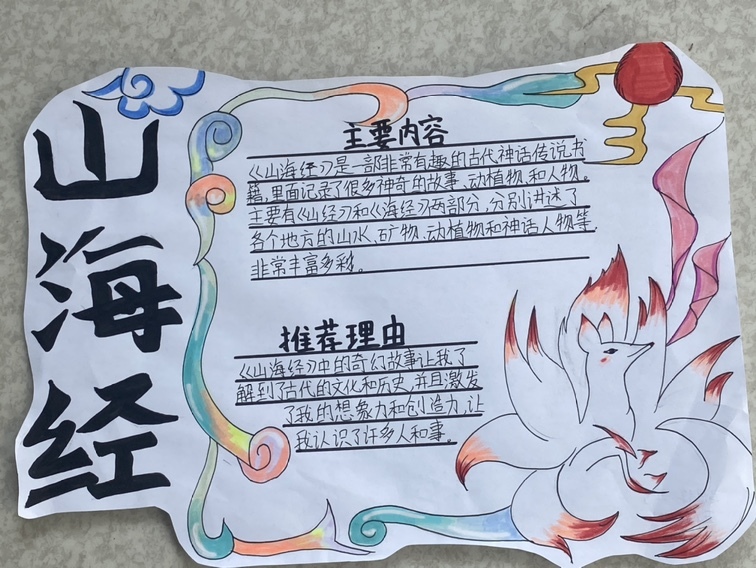 山海经
主要内容
《山海经》是一部非常有趣的古代神话传说书
籍,里面记录了很多神奇的故事、动植物和人物。
主要有《山经》和《海经》两部分,分别讲述了
各个地方的山水、矿物、动植物和神话人物等,
非常丰富多彩。
推荐理由
《山海经》中的奇幻故事让我了
解到了古代的文化和历史,并且激发
了我的想象力和创造力,让
我认识了许多人和事。